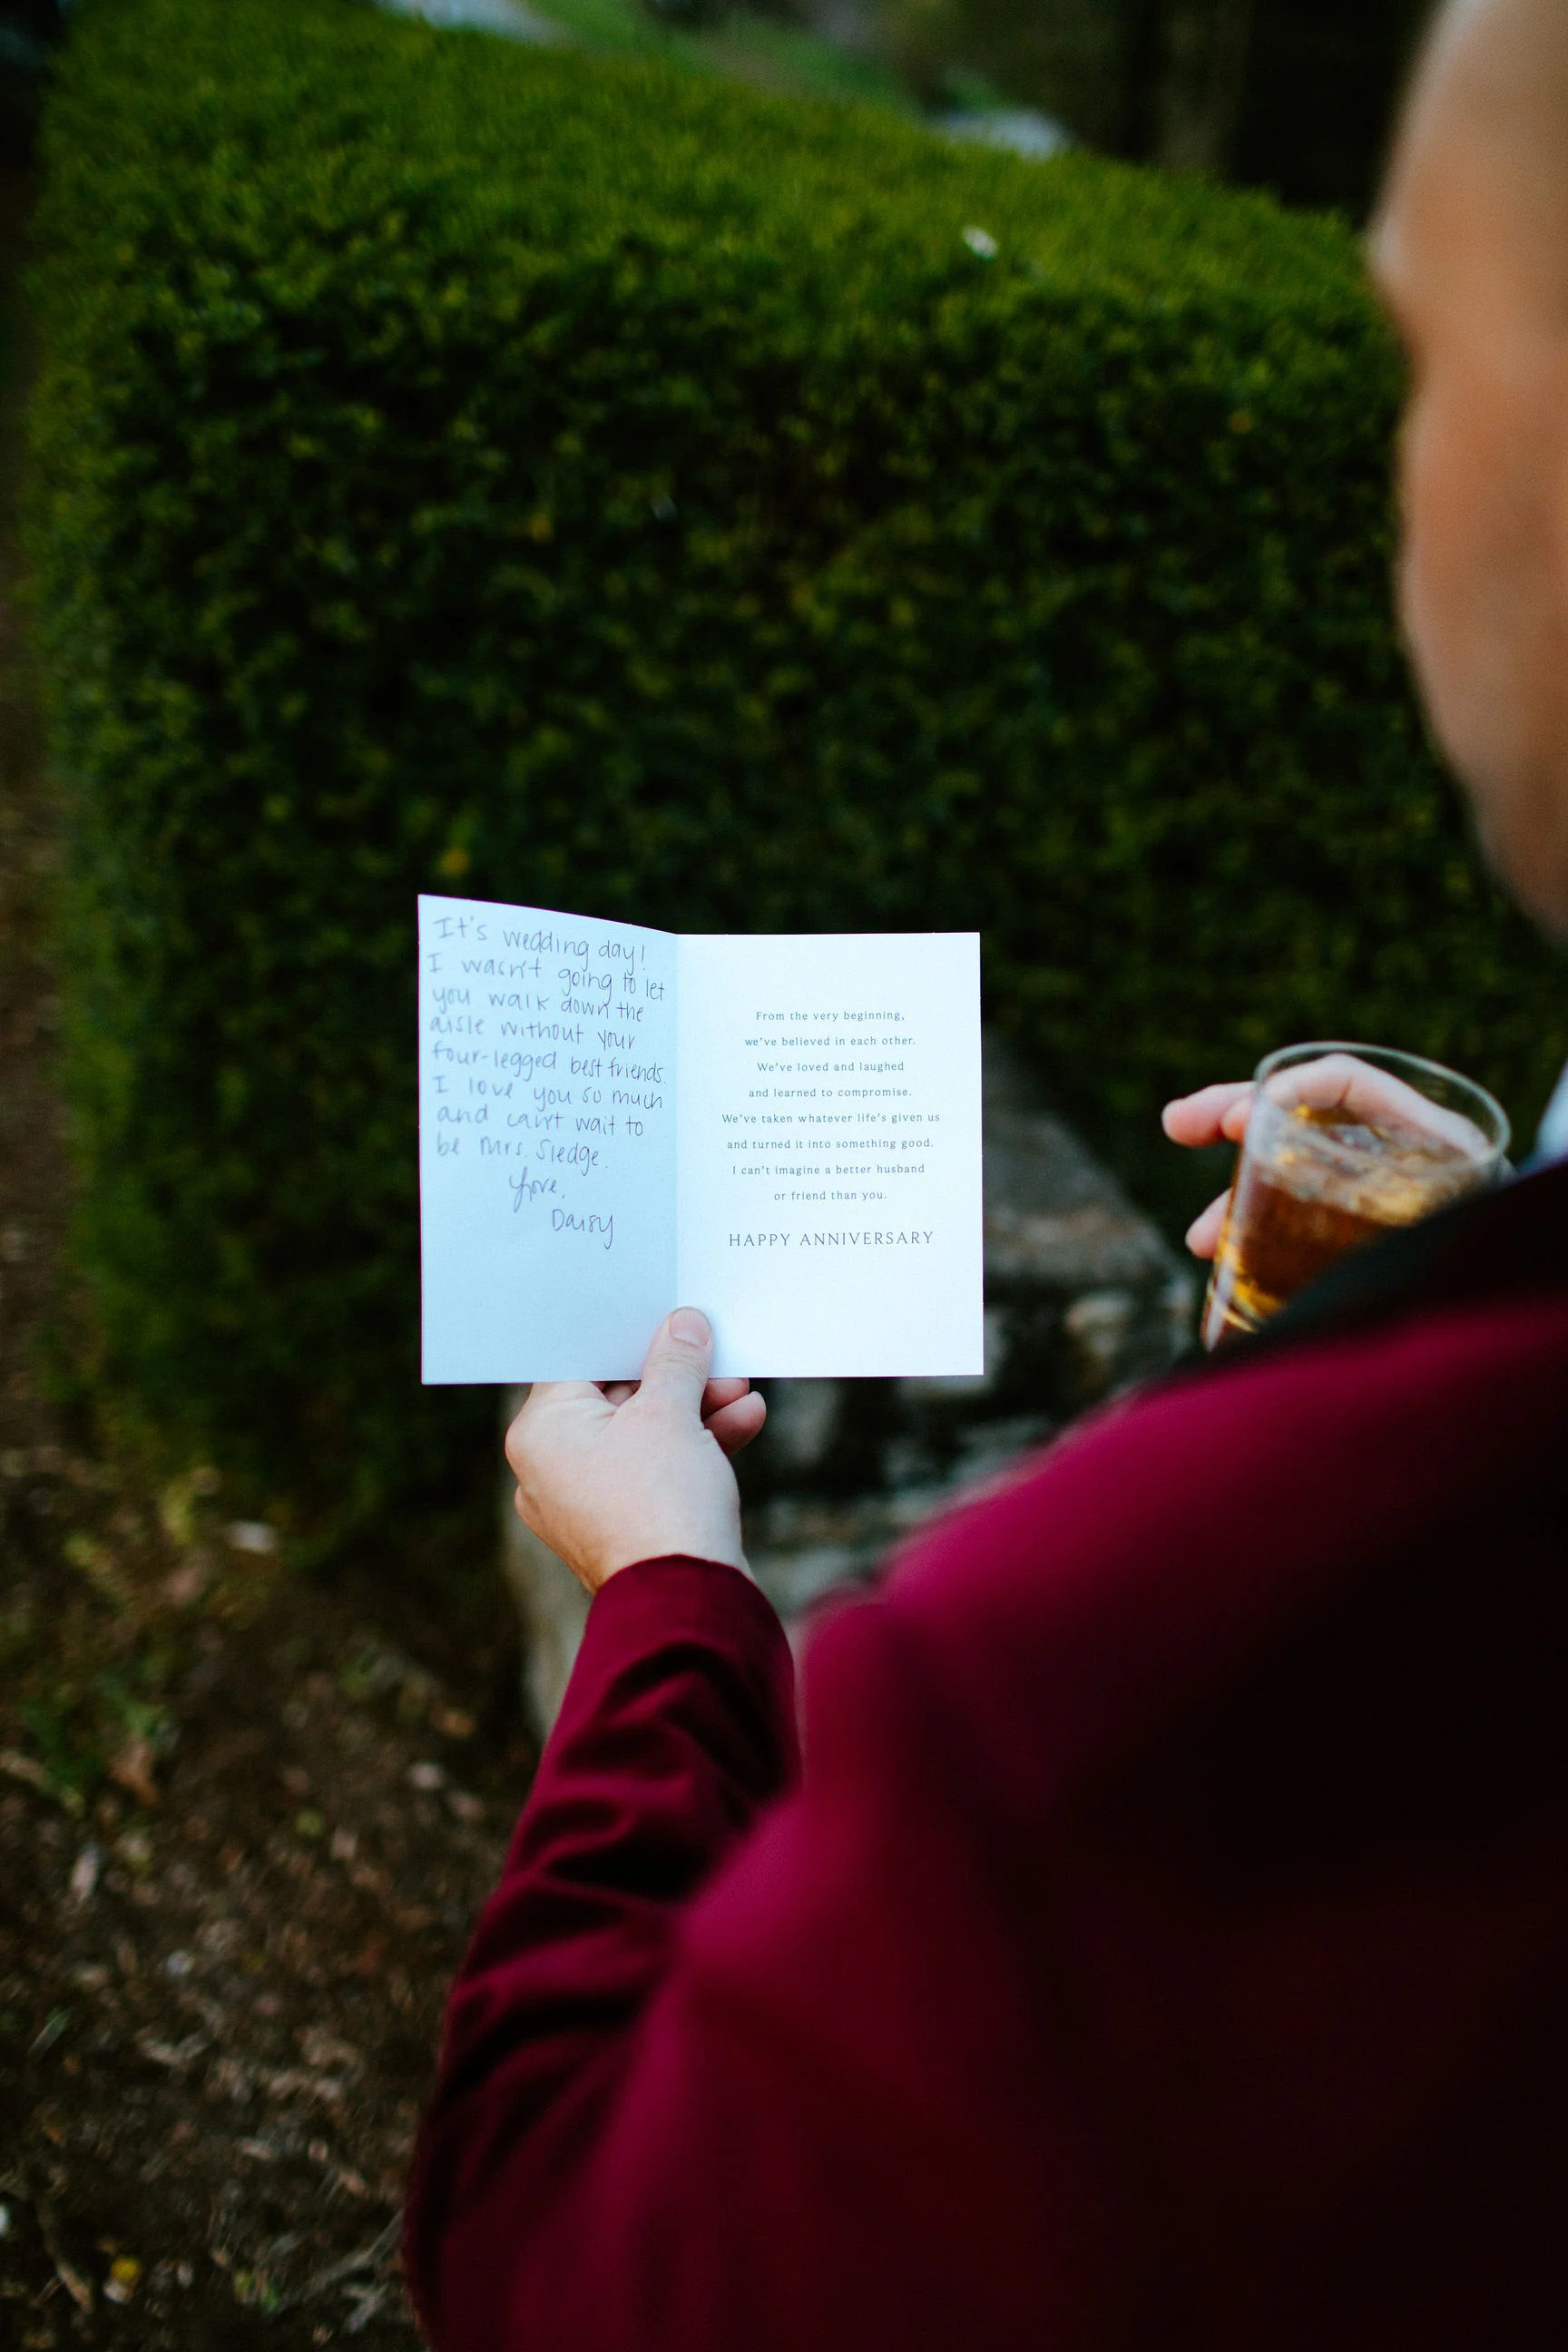 It's wedding day!
I wasn't going to let
you walk down the
aisle without your
four-legged best friends.
I love you so much
and can't wait to
be Mrs. Sledge.
Love,
Daisy
From the very beginning,
we've believed in each other.
We've loved and laughed
and learned to compromise.
We've taken whatever life's given us
and turned it into something good.
I can't imagine a better husband
or friend than you.
HAPPY ANNIVERSARY